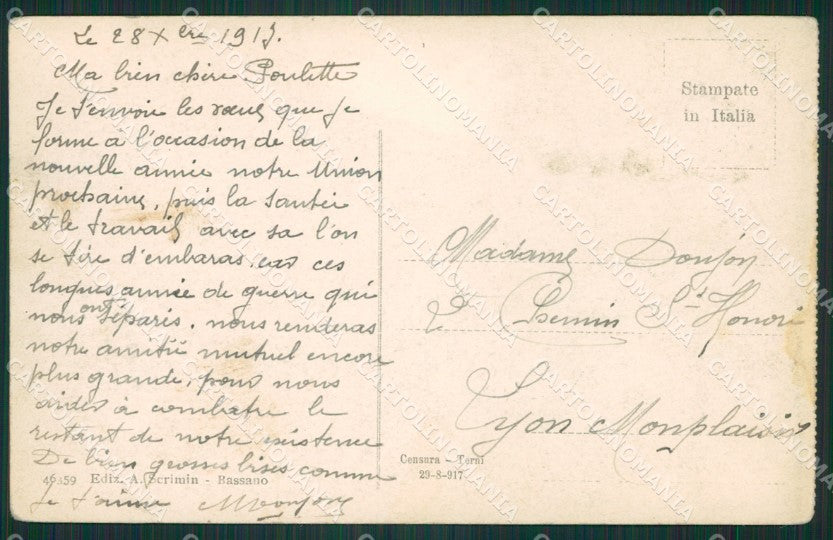 Le 28 Xbre 1917.
Ma bien chère Poulette
Je t'envoie les vœux que je
forme a l'occasion de la
nouvelle année notre Union
prochaine, puis la santée
et le travail avec sa l'on
se tire d'embaras, car ces
longues année de guerre qui
nous ont séparés. nous renderas
notre amitié mutuel encore
plus grande, pour nous
aider à combatre le
restant de notre existence
De bien grosses bises comme
Je t'aime
46359 Ediz. A. Scrimin - Bassano
Censura - Terni
29-8-917
Stampate
in Italia
Madame Donjon
2 Chemin St Honoré
Lyon Monplaisir
CARTOLINOMANIA